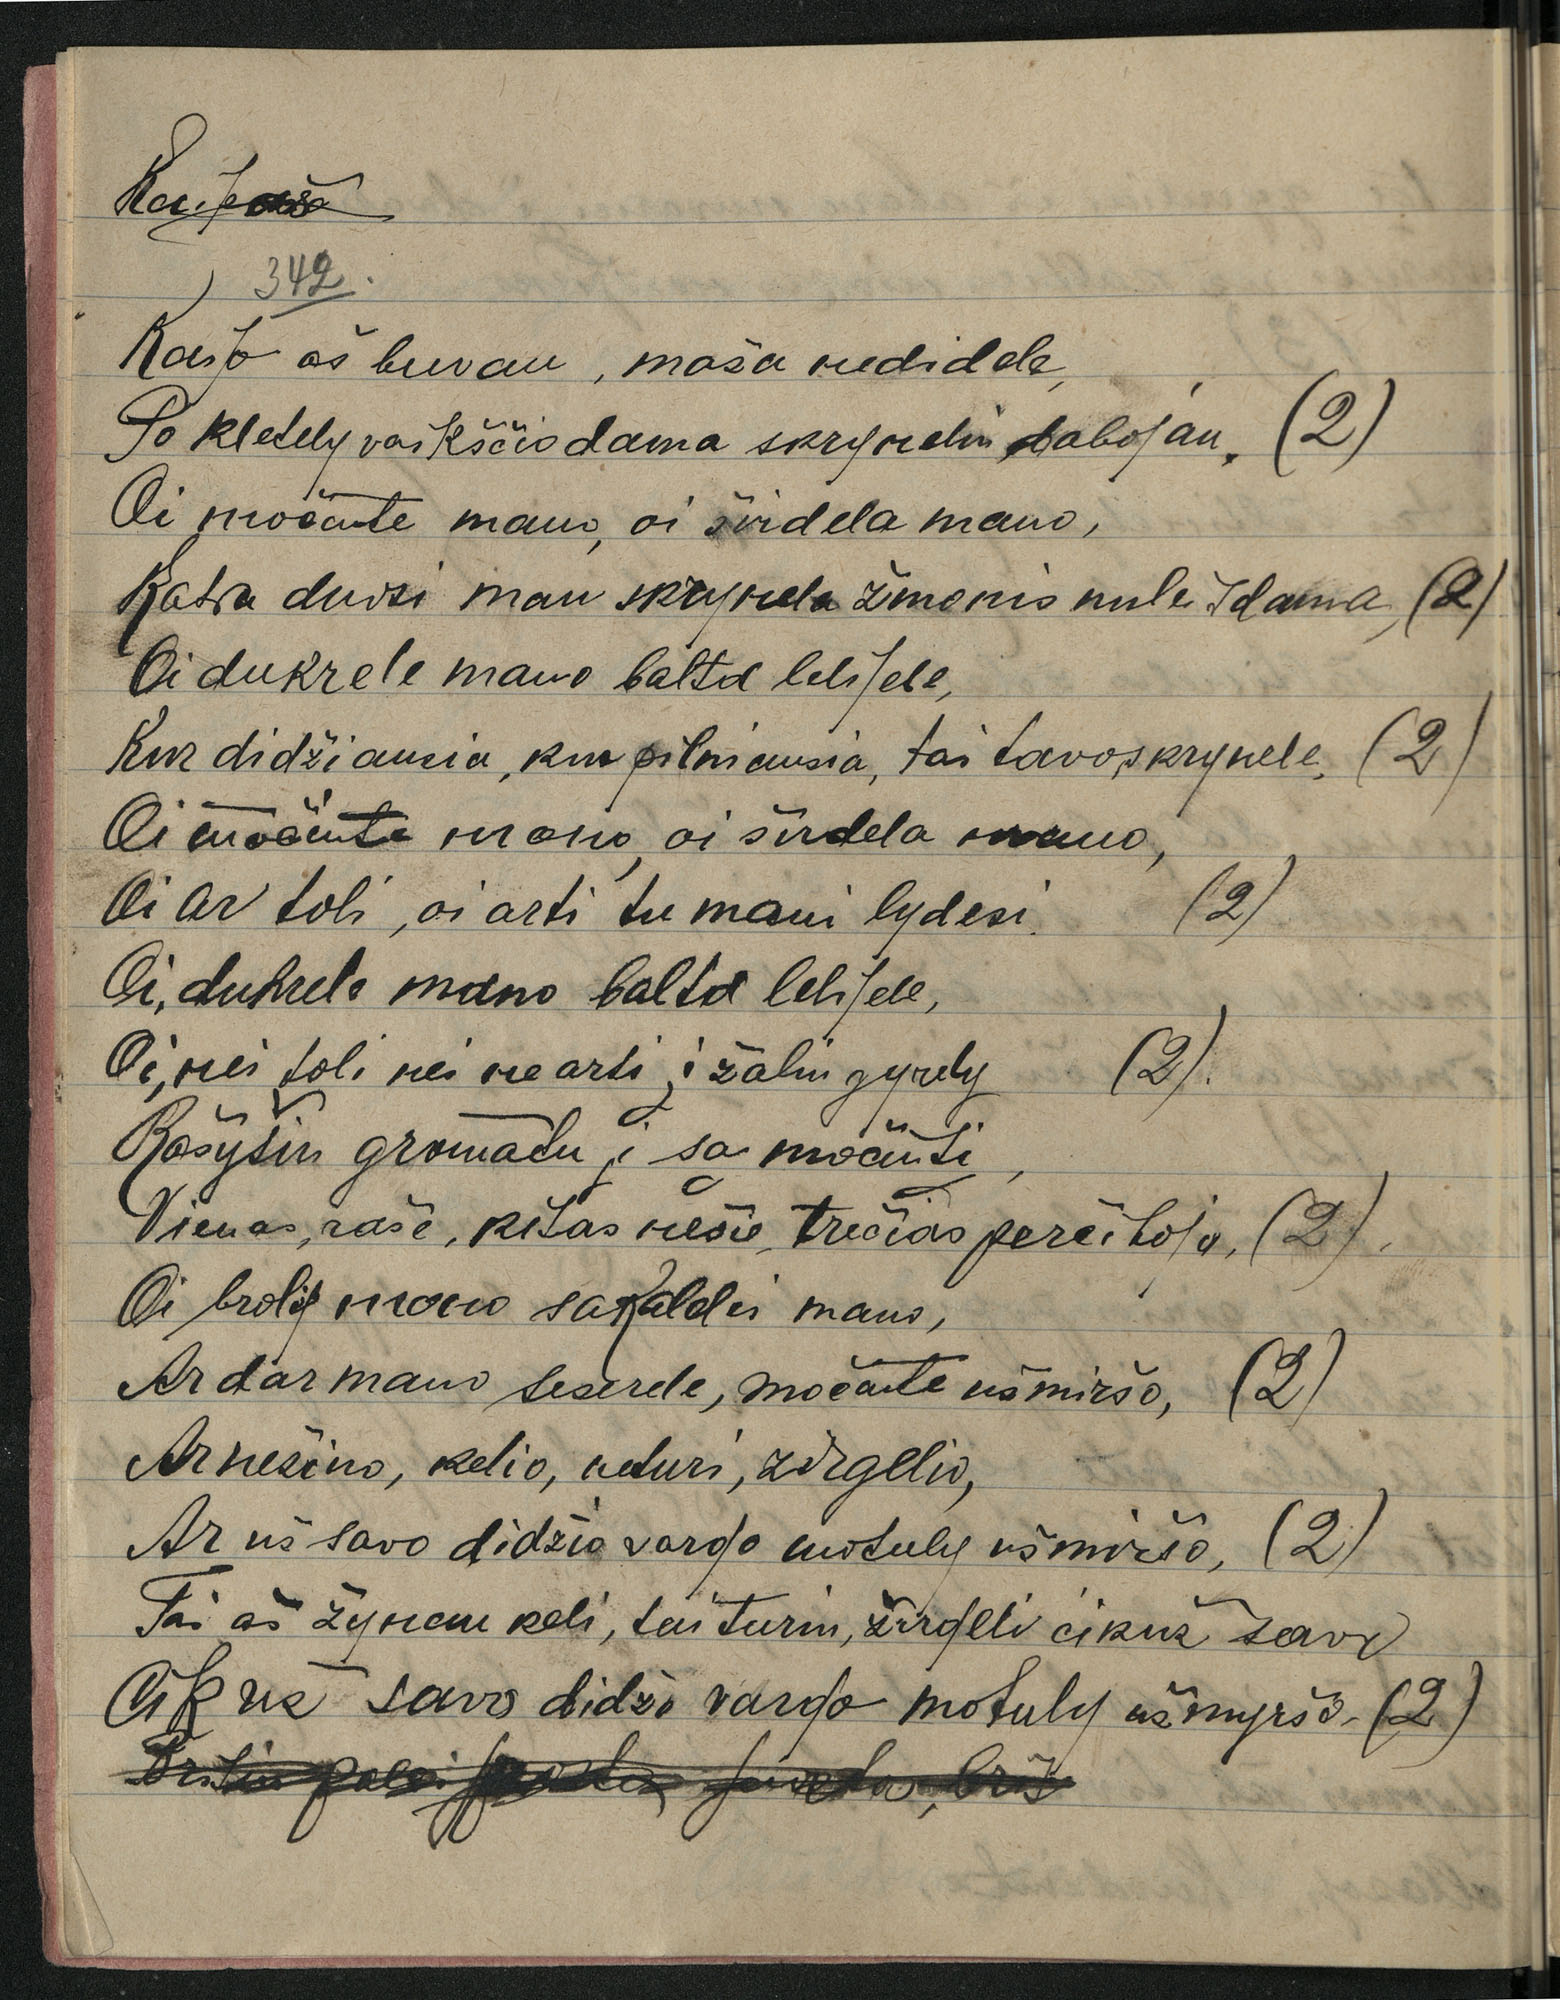 342.
Kaip aš buvau, maža nedidele,
Po kletely vaikščiodama skrynelin dabojau. (2)
Oi močiute mano, oi širdela mano,
Katra duosi man skrynela žmonis nuleizdama, (2)
Oi dukrele mano balta lelijele,
Kur didžiausia, kur pilniausia, tai tavo skrynele. (2)
Oi močiute mano, oi širdela mano,
Oi ar toli, oi arti tu mani lydesi. (2)
Oi, dukrele mano balta lelijele,
Oi, nei toli nei nearti, i žalin gyrely (2).
Rašysiu gromatu, i sa močiuti,
Vienas, raše, kitas neše, trečias perčitojo, (2).
Oi broliy mano sakaldei mano,
Ar dar mano seserele, močiute užmiršo, (2)
Ar nežino, kelio, neturi, žirgelio,
Ar už savo didžio vargo motuly užmiršo, (2)
Tai aš žynau keli, tai turiu, žirgeli cik už savo
Cik už savo didžo vargo motuly užmyršo. (2)